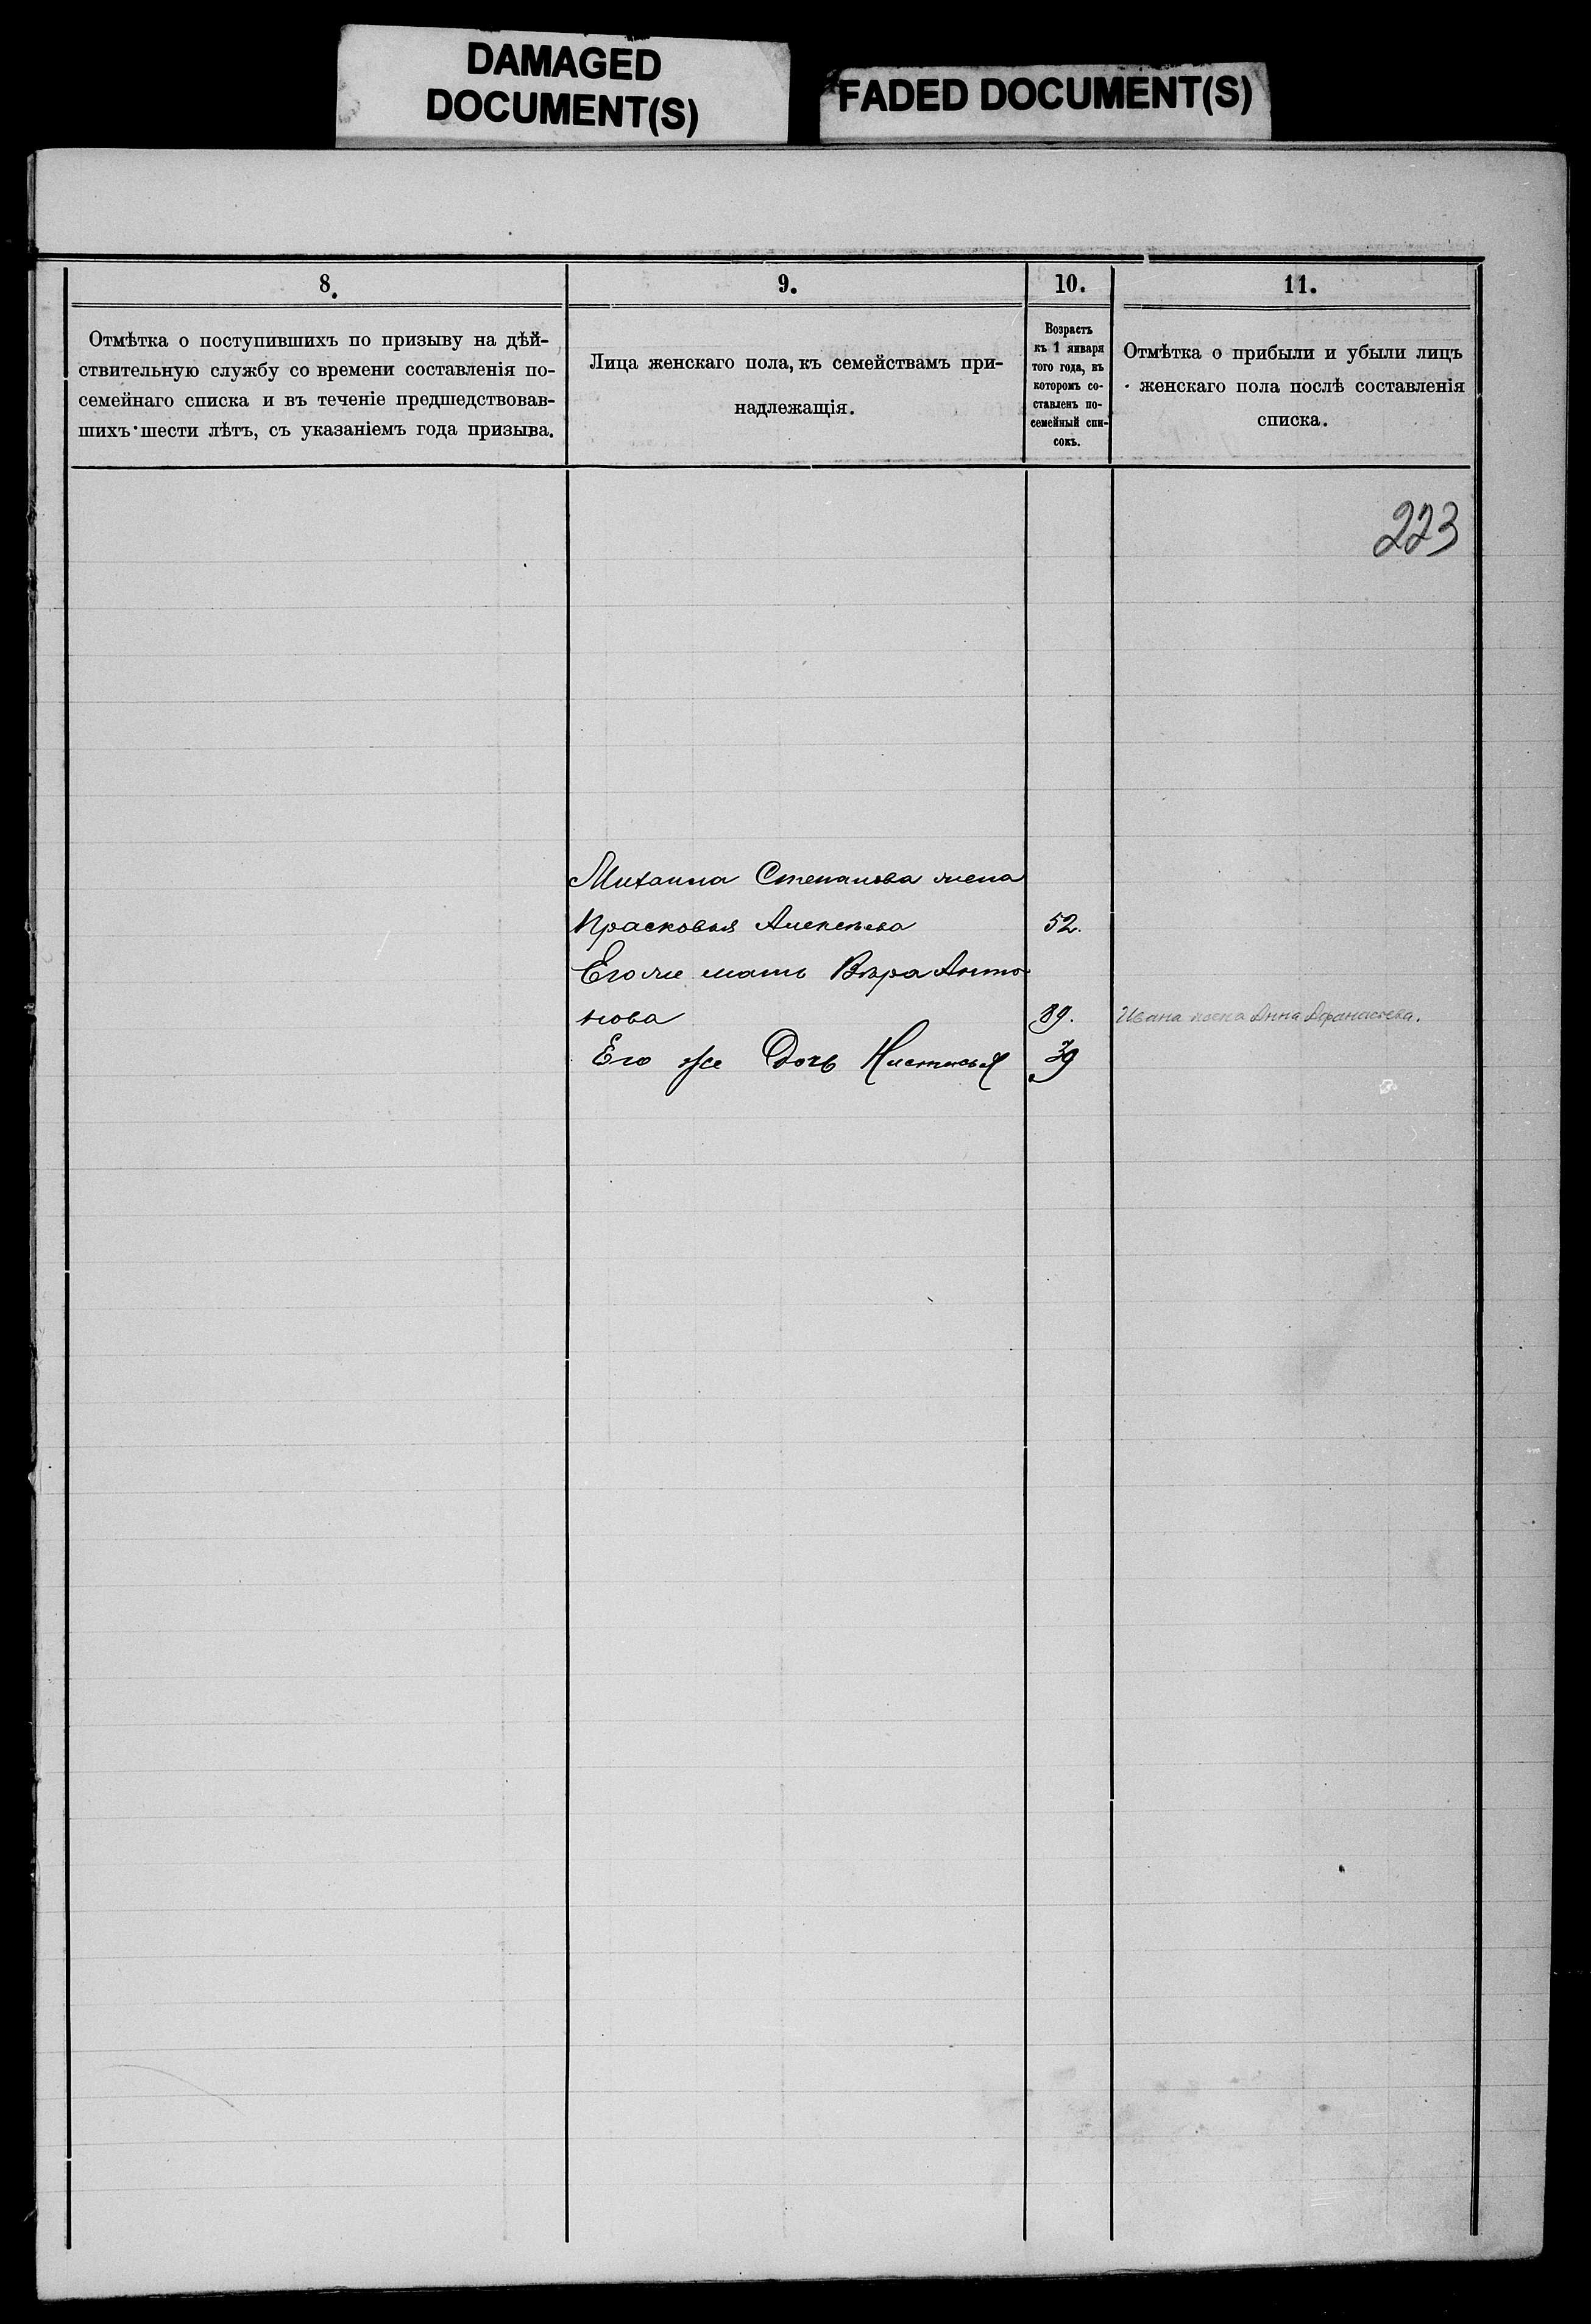 DAMAGED
DOCUMENT(S)
FADED DOCUMENT(S)
8.
9.
10.
11.
Отмѣтка о поступившихъ по призыву на дѣй-
ствительную службу со времени составленія по-
семейнаго списка и въ теченіе предшедствовав-
шихъ шести лѣтъ, съ указаніемъ года призыва.
Лица женскаго пола, къ семействамъ при-
надлежащія.
Возрастъ
къ 1 января
того года, въ
которомъ со-
ставленъ по-
семейный спи-
сокъ.
Отмѣтка о прибыли и убыли лицъ
женскаго пола послѣ составленія
списка.
223
Михаила Степанова жена
Прасковья Алексѣева 52.
Его же мать Вѣра Анто-
нова 89. Ивана жена Анна Афанасьева.
Его же Дочь Настасья 39